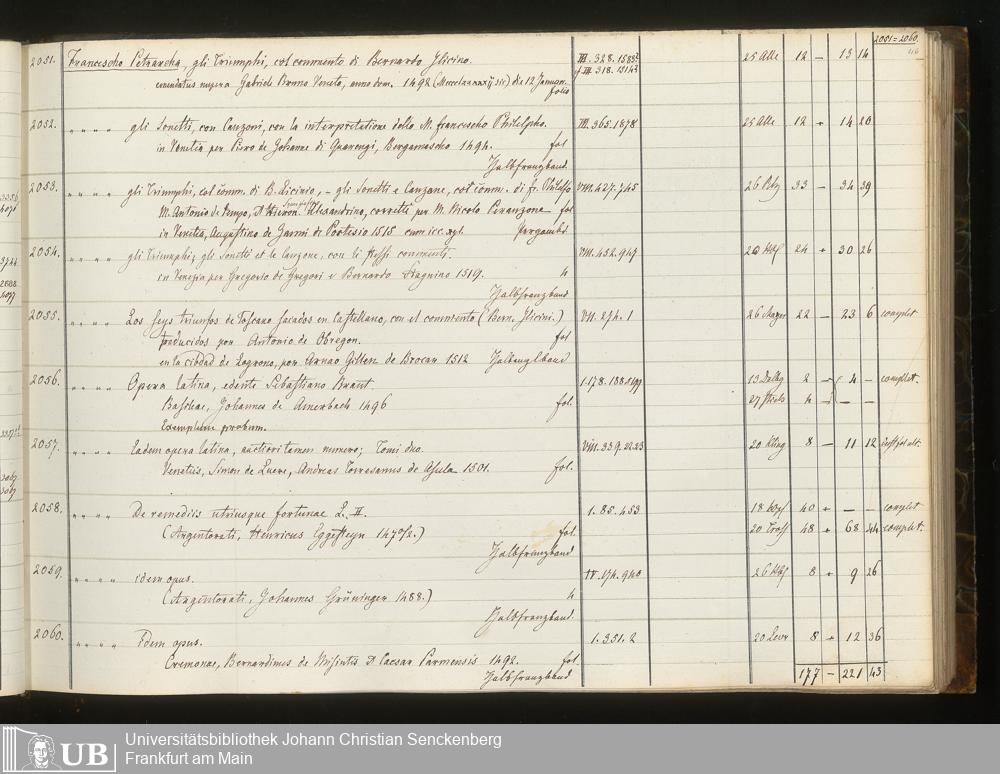 2051=2060.
2051. Francescho Petrarcha, gli Triumphi, col commento di Bernardo Ilicino. III. 328. 1583 25 Alle 12 — 13 14
emendatus nuper a Gabriele Bruno Veneto, anno dom. 1492 die 12 Januar. III. 318. 1514
folio
2052. " " " " gli Sonetti, con Canzoni, con la interpretatione dello M. francescho Philelpho. III. 365. 1878 25 Alle 12 14 20
in Venetia per Piero de Johanne di Quarengi, Bergamascho 1494. fol
Halbfranzband.
2053. " " " " gli Triumphi, col comm. di B. Licinio, – gli Sonetti e Canzone, col comm. di fr. Philelfo VIII. 427. 745 26 33 — 34 39
M. Antonio de Tempo, Hieron. Alexandrino, corretti per M. Nicolo Peranzone fol
in Venetia, Augustino de Zanni de Portesio 1515 cum icc. xyl. Pergambd.
2054. " " " " gli Triumphi; gli Sonetti et le Canzone, con li commenti. VIII. 452. 947 24 30 26
in Venezia per Gregorio de Gregori e Bernardo Stagnino 1519. 4
Halbfranzband
2055. " " " " Los seys triumfos de Toscano sacados en Castellano, con el commento (Bern. Ilicini.) VII. 274. 1 26 Mayer 22 — 23 6 complet
traducidos por Antonio de Obregon. fol
en la cibdad de Logrono, por Arnao Gillen de Brocar 1512
2056. " " " " Opera latina, edente Sebastiano Brant. 1. 178. 188. 13 2 4 — complet.
Basileae, Johannes de Amerbach 1496 fol. 27 4 — —
Exemplum probum.
2057. " " " " Eadem opera latina, auctiori tamen numero; Tomi duo. VIII. 339. 22.23 20 Kling 8 — 11 12
Venetiis, Simon de Luere, Andreas Torresanus de Asula 1501. fol.
2058. " " " " De remediis utriusque fortunae L. II. 1. 85. 453 18 40 — — complet
(Argentorati, Henricus Eggesteyn 1470/2.) fol. 20 48 68 44 complet.
Halbfranzband
2059. " " " " idem opus. IV. 174. 940 26 8 9 26
(Argentorati, Johannes Grüninger 1488.) 4
Halbfranzband.
2060. " " " " Idem opus. 1. 351. 2 20 8 12 36
Cremonae, Bernardinus de Misintis & Caesar Parmensis 1492. fol.
Halbfranzband
177 — 221 43
UB Universitätsbibliothek Johann Christian Senckenberg
Frankfurt am Main